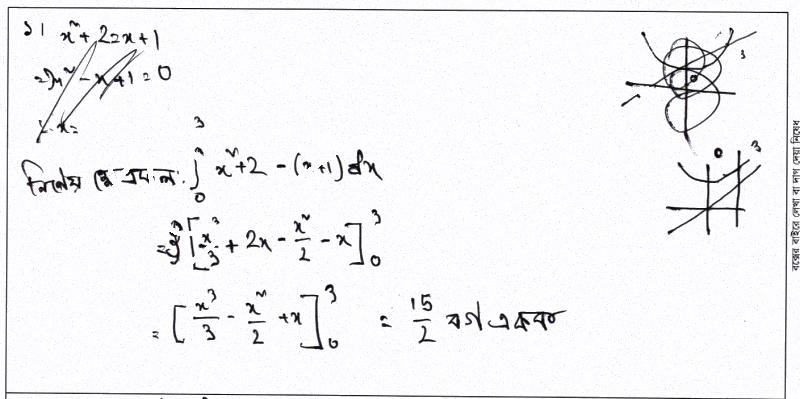 ১। x² + 2 = x + 1
⇒ x² - x + 1 = 0
∴ x =
নির্ণেয় ক্ষেত্রফল: ∫₀³ x² + 2 - (x + 1) dx
= [x³/3 + 2x - x²/2 - x]₀³
= [x³/3 - x²/2 + x]₀³ = 15/2 বর্গ একক
3
0 3
বক্সের বাইরে লেখা বা দাগ দেয়া নিষেধ